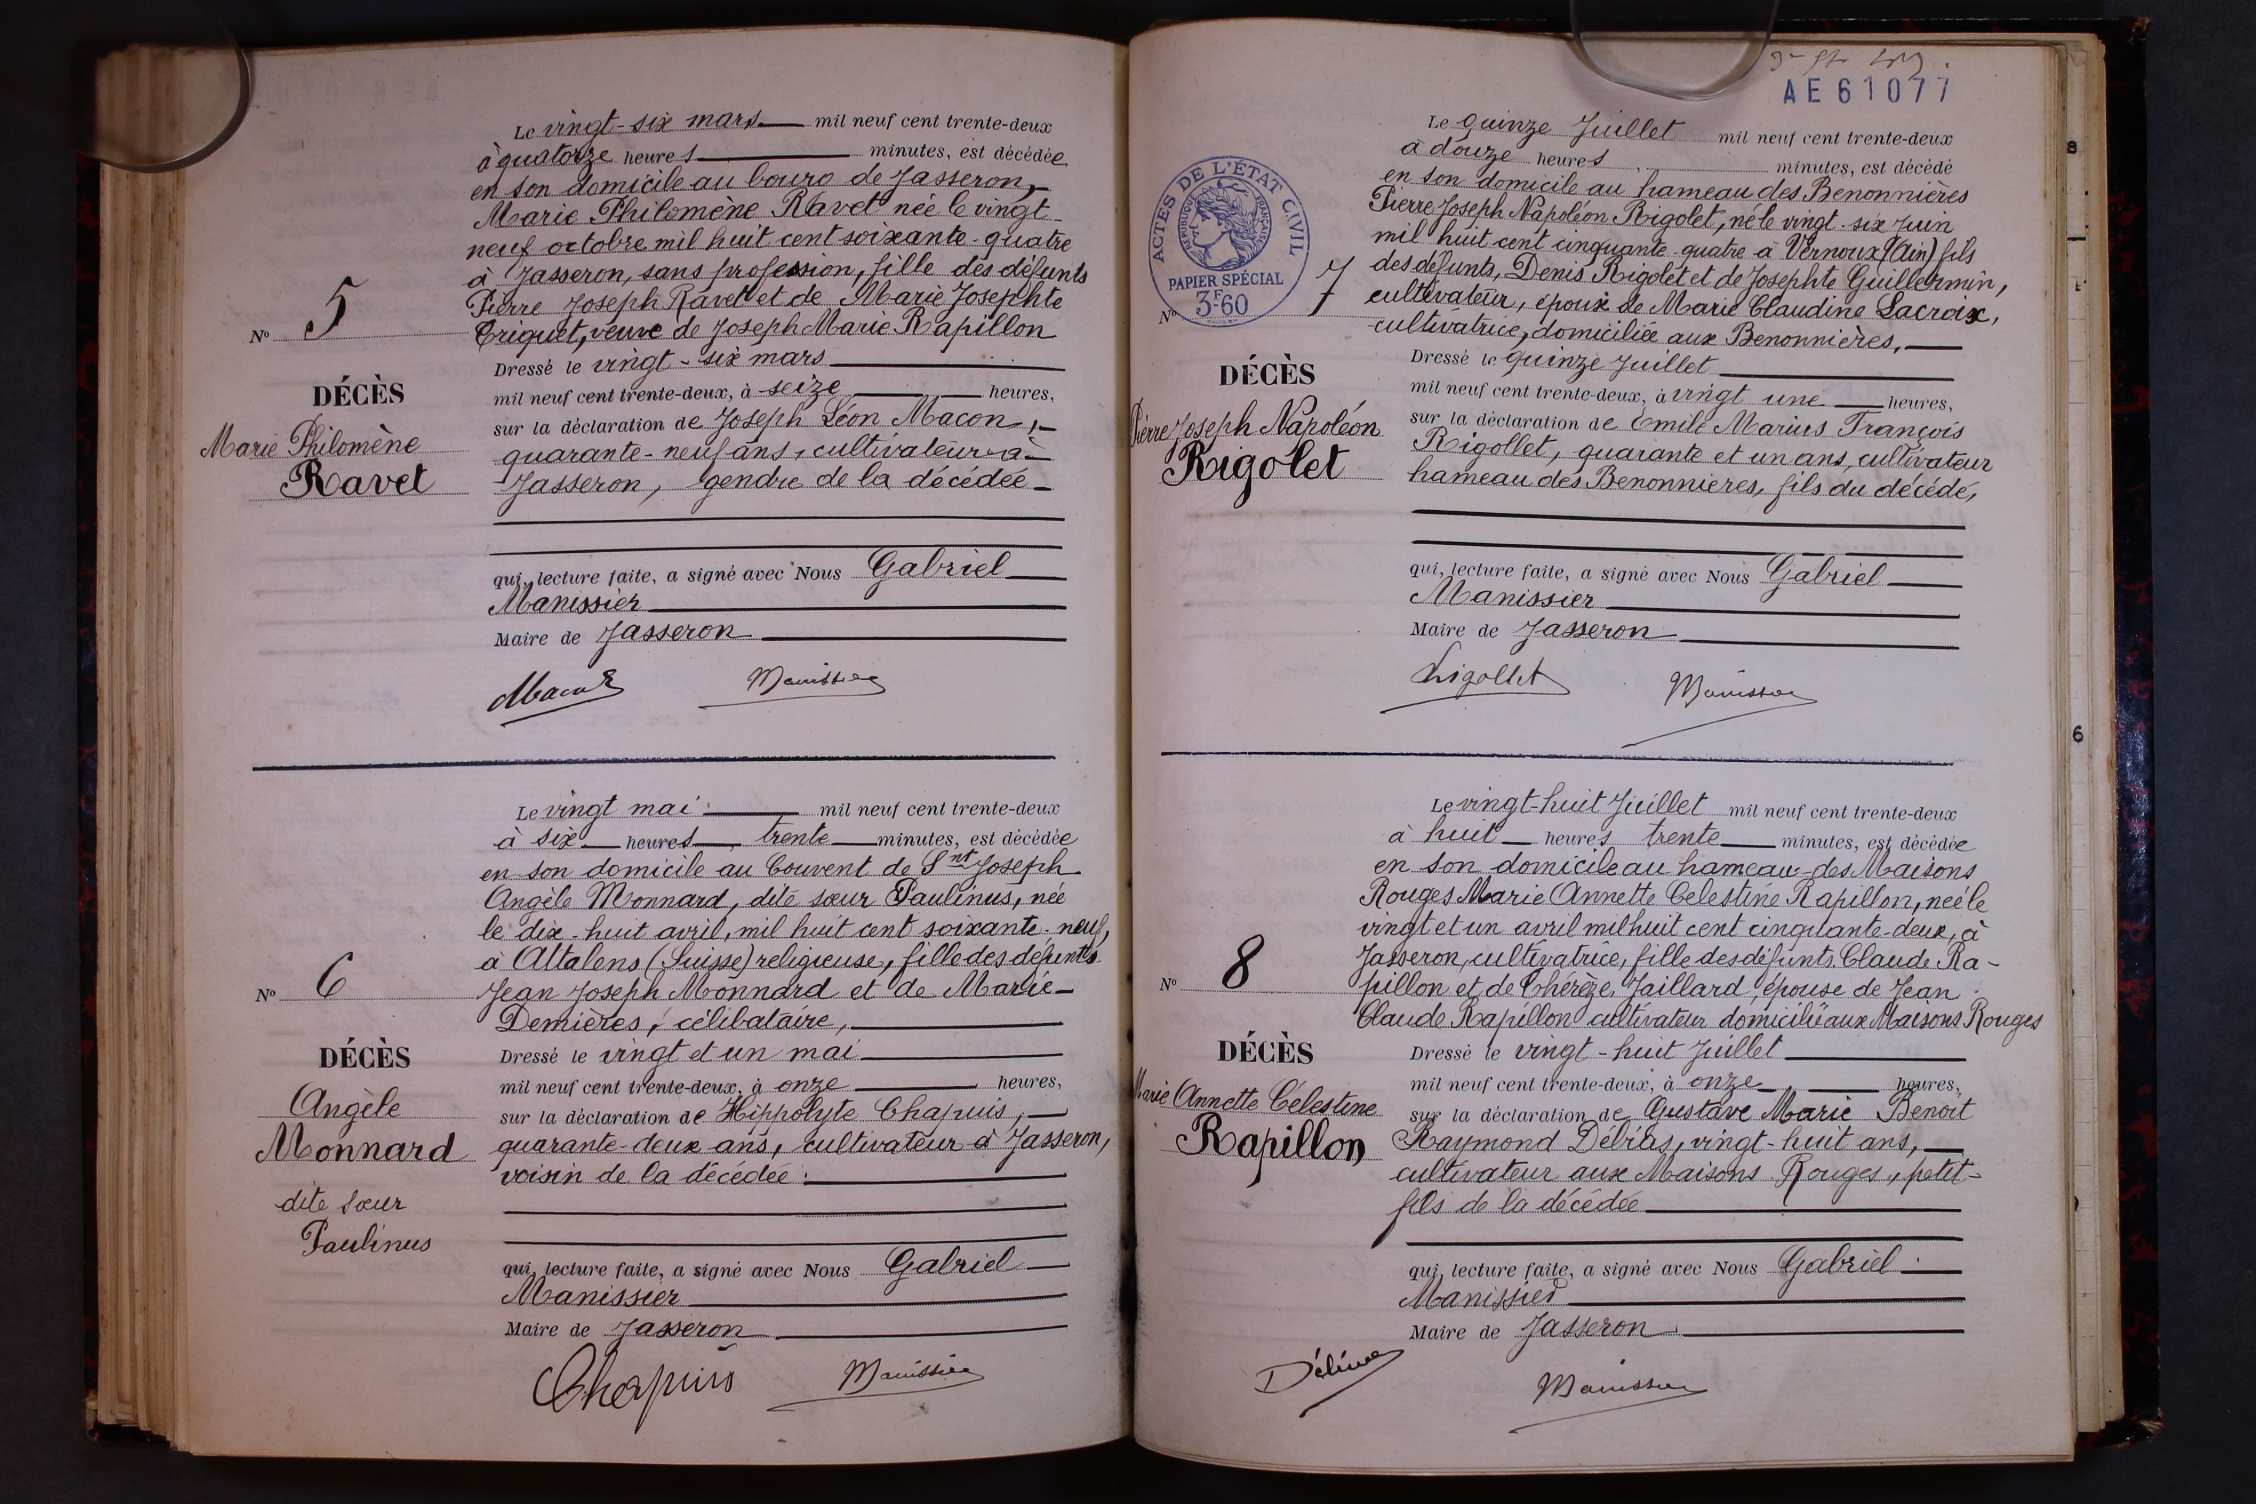 Le vingt-six mars mil neuf cent trente-deux
à quatorze heures minutes, est décédée
en son domicile au bourg de Jasseron,
Marie Philomène Ravet née le vingt
neuf octobre mil huit cent soixante-quatre
à Jasseron, sans profession, fille des défunts
Pierre Joseph Ravet et de Marie Josephte
Triquet, veuve de Joseph Marie Rapillon
Dressé le vingt-six mars
mil neuf cent trente-deux, à seize heures,
sur la déclaration de Joseph Léon Macon,
quarante-neuf ans, cultivateur à
Jasseron, gendre de la décédée
qui, lecture faite, a signé avec Nous Gabriel
Manissier
Maire de Jasseron
Manissier
No 5
DÉCÈS
Marie Philomène
Ravet
Le vingt mai mil neuf cent trente-deux
à six heures trente minutes, est décédée
en son domicile au Couvent de Snt Joseph
Angèle Monnard, dite sœur Paulinus, née
le dix-huit avril, mil huit cent soixante-neuf,
à Attalens (Suisse) religieuse, fille des défunts
Jean Joseph Monnard et de Marie
Demières, célibataire,
Dressé le vingt et un mai
mil neuf cent trente-deux, à onze heures,
sur la déclaration de Hippolyte Chapuis,
quarante-deux ans, cultivateur à Jasseron,
voisin de la décédée.
qui, lecture faite, a signé avec Nous Gabriel
Manissier
Maire de Jasseron
Chapuis Manissier
No 6
DÉCÈS
Angèle
Monnard
dite sœur
Paulinus
AE 61077
ACTES DE L'ÉTAT CIVIL
RÉPUBLIQUE FRANÇAISE
PAPIER SPÉCIAL
3F60
Le quinze Juillet mil neuf cent trente-deux
à douze heures minutes, est décédé
en son domicile au hameau des Benonnières
Pierre Joseph Napoléon Rigolet, né le vingt-six Juin
mil huit cent cinquante-quatre à Vernoux (Ain) fils
des défunts, Denis Rigolet et de Josephte Guillermin,
cultivateur, époux de Marie Claudine Lacroix,
cultivatrice, domiciliée aux Benonnières,
Dressé le quinze Juillet
mil neuf cent trente-deux, à vingt une heures,
sur la déclaration de Emile Marius François
Rigollet, quarante et un ans, cultivateur
hameau des Benonnieres, fils du décédé,
qui, lecture faite, a signé avec Nous Gabriel
Manissier
Maire de Jasseron
Rigollet Manissier
No 7
DÉCÈS
Pierre Joseph Napoléon
Rigolet
Le vingt-huit Juillet mil neuf cent trente-deux
à huit heures trente minutes, est décédée
en son domicile au hameau des Maisons
Rouges Marie Annette Celestine Rapillon, née le
vingt et un avril mil huit cent cinquante-deux, à
Jasseron, cultivatrice, fille des défunts Claude Ra-
pillon et de Thérèze Jaillard, épouse de Jean
Claude Rapillon cultivateur domicilié aux Maisons Rouges
Dressé le vingt-huit Juillet
mil neuf cent trente-deux, à onze heures,
sur la déclaration de Gustave Marie Benoit
Raymond Débias, vingt-huit ans,
cultivateur aux Maisons Rouges, petit-
fils de la décédée
qui, lecture faite, a signé avec Nous Gabriel
Manissier
Maire de Jasseron
Manissier
No 8
DÉCÈS
Marie Annette Célestine
Rapillon
6